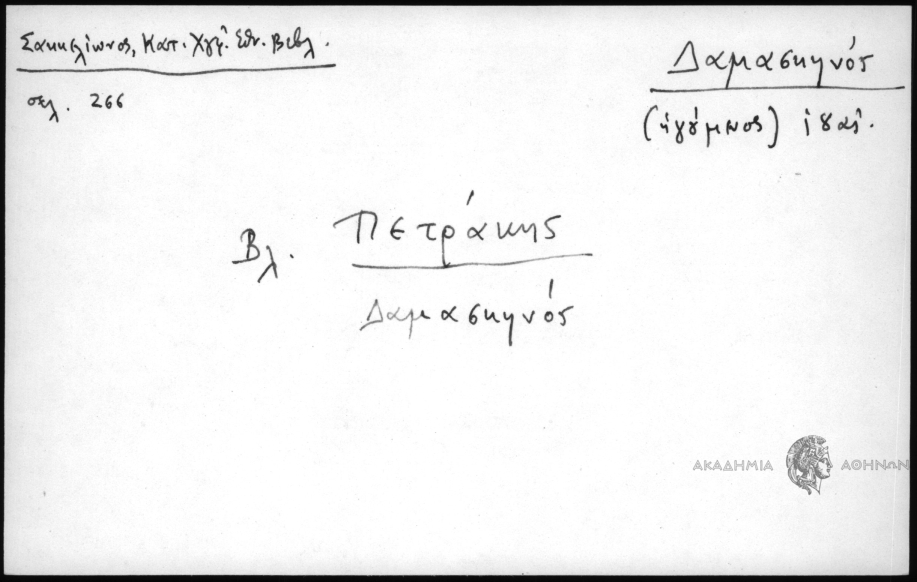 Σακκελίωνος, Κατ. Χγφ. Εθν. Βιβλ.
σελ. 266
Δαμασκηνός
(ηγούμενος)
Βλ. Πετράκης
Δαμασκηνός
ΑΚΑΔΗΜΙΑ ΑΘΗΝΩΝ